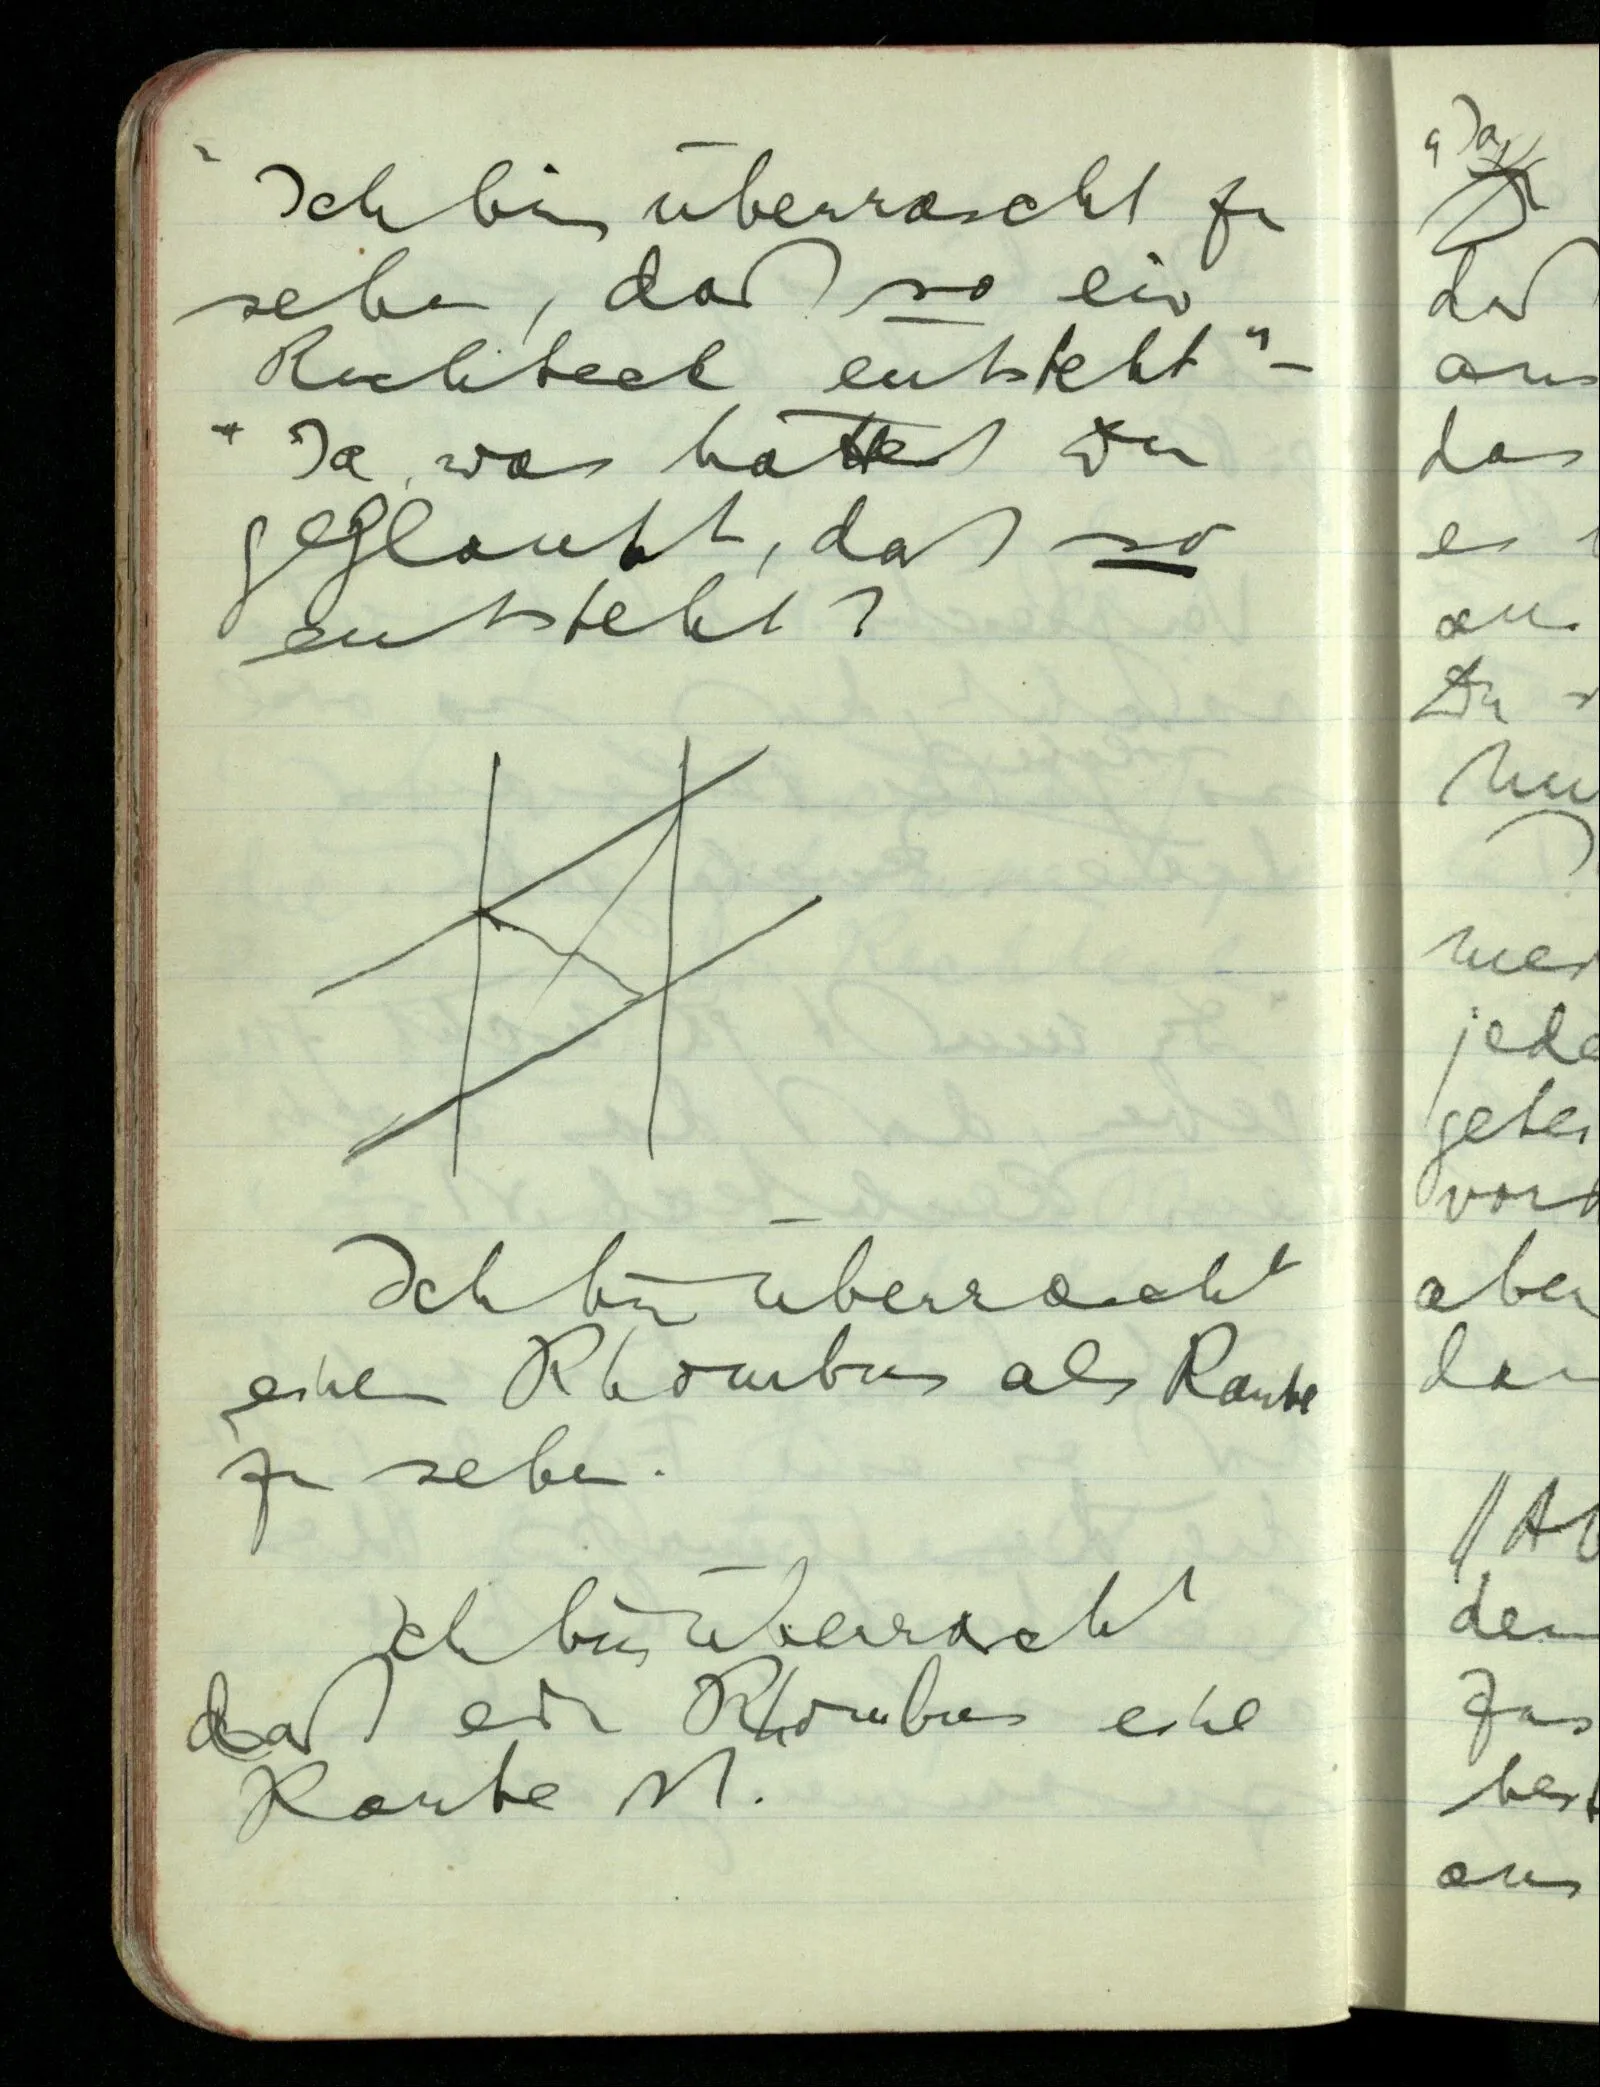 "Ich bin überrascht zu
sehen, daß so ein
Rechteck entsteht" –
"Ja, was hattest Du
geglaubt, daß so
entsteht?
Ich bin überrascht
einen Rhombus als Raute
zu sehen.
Ich bin überrascht
daß ein Rhombus eine
Raute ist.
"Ja
daß
aus
das
es
Du
jede
aber